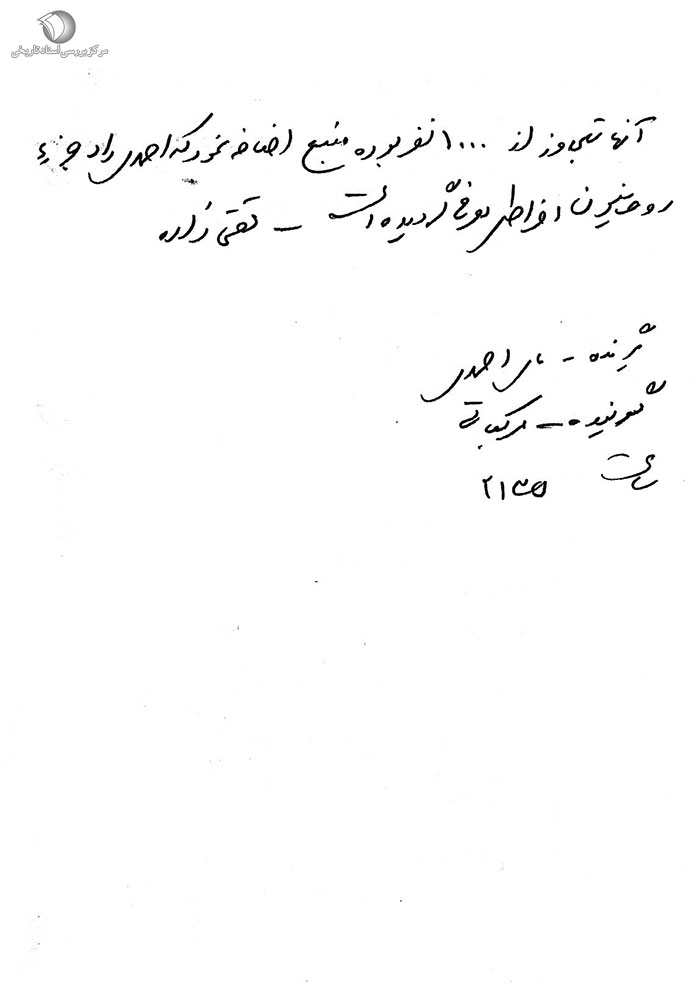 مرکز بررسی اسناد تاریخی
آنها متجاوز از ۱۰۰۰ نفر بوده منبع اضافه نمود که احمدی راد جزء
روحانیون افراطی معرفی گردیده است – تقی زاده
گیرنده – احمدی
گوینده –
ساعت ۲۱۳۵